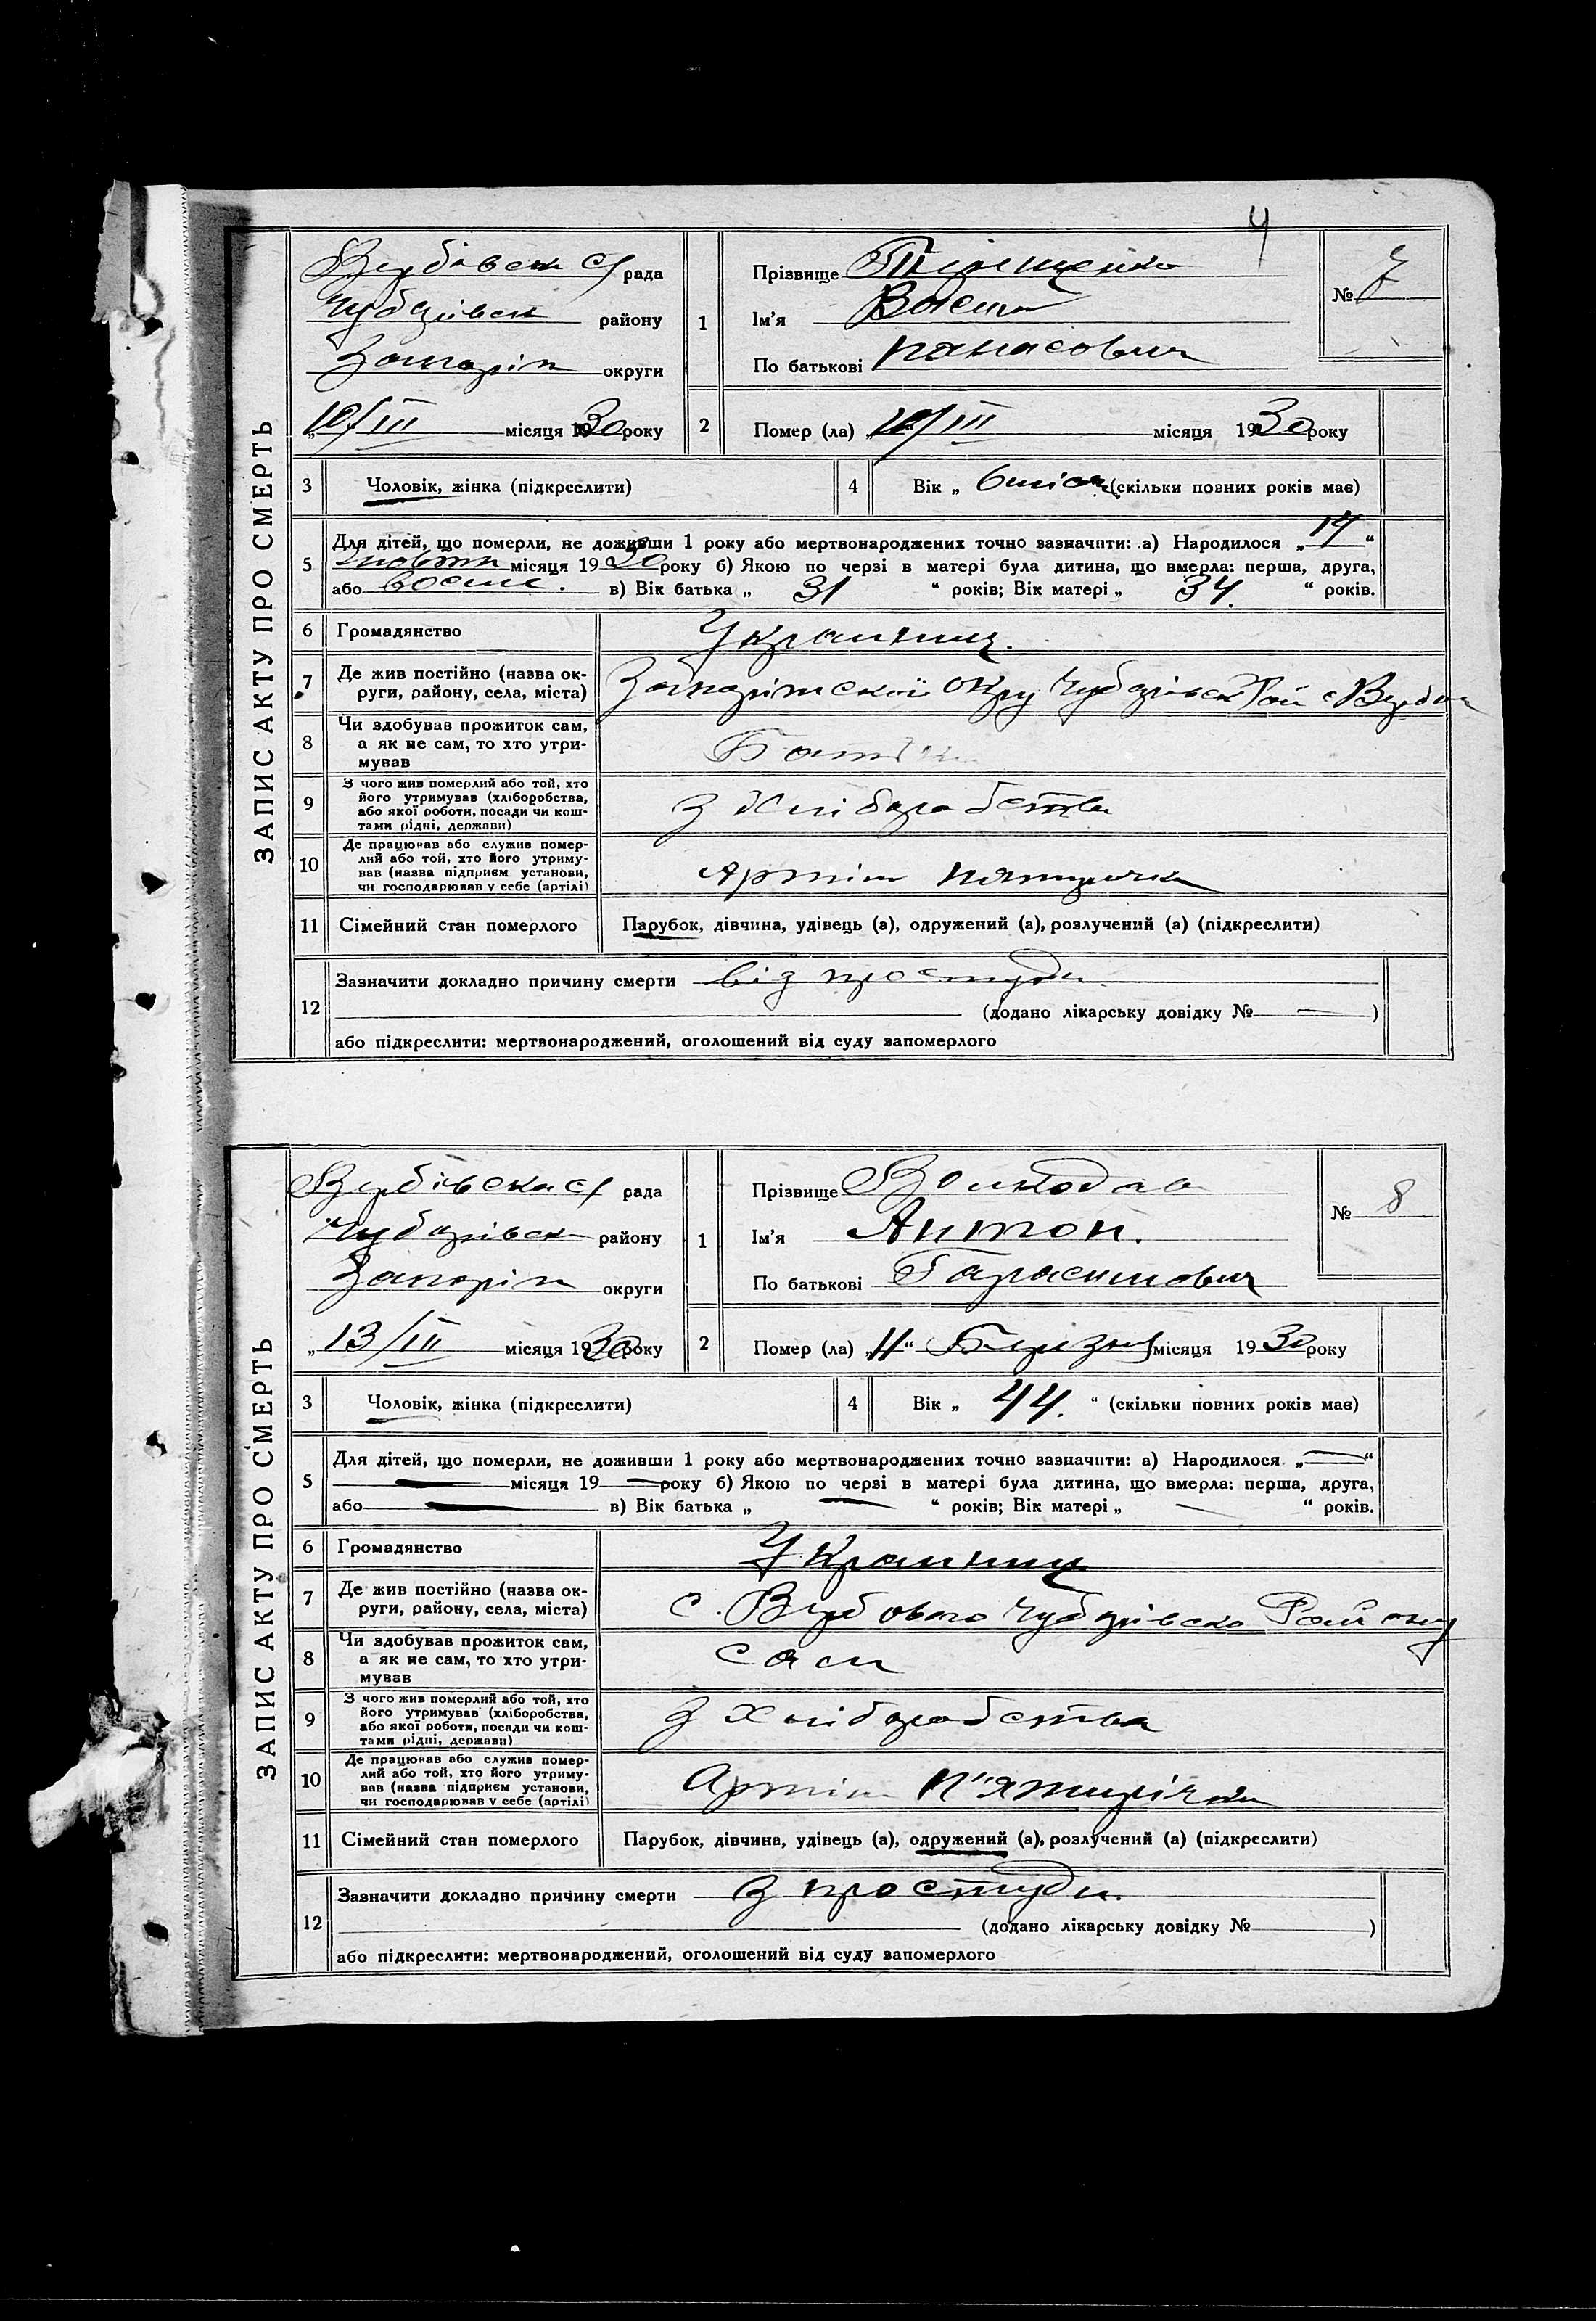 4
ЗАПИС АКТУ ПРО СМЕРТЬ
Вербівська с/ рада
Чубарівськ району
Запоріж округи
„10/III місяця 1930 року
1 Прізвище
Ім'я
По батькові Панасович
№ 7
2 Помер (ла) „10/III місяця 1930 року
3 Чоловік, жінка (підкреслити)
4 Вік „ 6 міся (скільки повних років має)
5 Для дітей, що померли, не доживши 1 року або мертвонароджених точно зазначити: а) Народилося „ 14 “
місяця 19 року б) Якою по черзі в матері була дитина, що вмерла: перша, друга,
або в) Вік батька „ 31 “ років; Вік матері „ 34 “ років.
6 Громадянство Украинец.
7 Де жив постійно (назва ок-
руги, району, села, міста) Запоріжської окру Чубарівськ Рай с Вербов
8 Чи здобував прожиток сам,
а як не сам, то хто утри-
мував Батьк
9 З чого жив померлий або той, хто
його утримував (хліборобства,
або якої роботи, посади чи кош-
тами рідні, держави) З хліборобства
10 Де працював або служив помер-
лий або той, хто його утриму-
вав (назва підприєм установи,
чи господарював у себе (артілі) Артіль
11 Сімейний стан померлого Парубок, дівчина, удівець (а), одружений (а), розлучений (а) (підкреслити)
12 Зазначити докладно причину смерти від простуди.
(додано лікарську довідку № — )
або підкреслити: мертвонароджений, оголошений від суду запомерлого
ЗАПИС АКТУ ПРО СМЕРТЬ
Вербівська с/ рада
Чубарівськ району
Запоріж округи
„ 13/III місяця 1930 року
1 Прізвище Волкодав
Ім'я Антон.
По батькові Гарасимович
№ 8
2 Помер (ла) „11“ Березня місяця 1930 року
3 Чоловік, жінка (підкреслити)
4 Вік „ 44. “ (скільки повних років має)
5 Для дітей, що померли, не доживши 1 року або мертвонароджених точно зазначити: а) Народилося „ — “
— місяця 19 — року б) Якою по черзі в матері була дитина, що вмерла: перша, друга,
або — в) Вік батька „ — “ років; Вік матері „ — “ років.
6 Громадянство Украинец
7 Де жив постійно (назва ок-
руги, району, села, міста) с. Вербового Чубарівсько Району
8 Чи здобував прожиток сам,
а як не сам, то хто утри-
мував Сам
9 З чого жив померлий або той, хто
його утримував (хліборобства,
або якої роботи, посади чи кош-
тами рідні, держави) З Хліборобства
10 Де працював або служив помер-
лий або той, хто його утриму-
вав (назва підприєм установи,
чи господарював у себе (артілі) Артіль П'ятирічка
11 Сімейний стан померлого Парубок, дівчина, удівець (а), одружений (а), розлучений (а) (підкреслити)
12 Зазначити докладно причину смерти З простуди.
(додано лікарську довідку № )
або підкреслити: мертвонароджений, оголошений від суду запомерлого